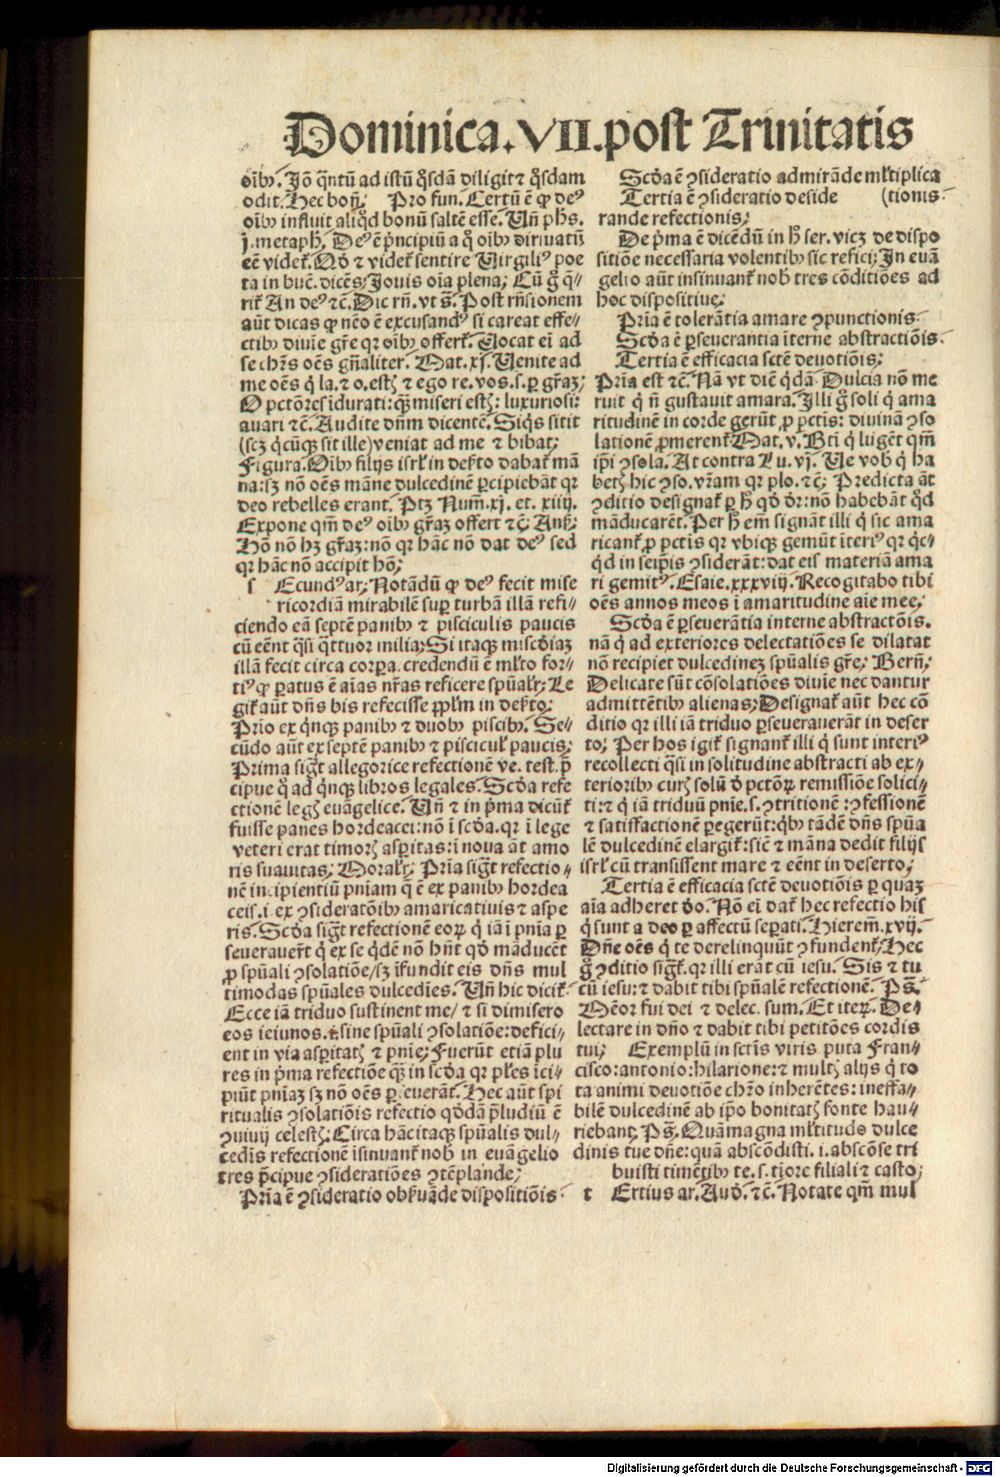 Dominica.VII.post Trinitatis
oib9. Jō q̄ntū ad istū q̄sdā diligit ⁊ q̄sdam
odit. Hec boñ. Pro fun. Certū ē ꝙ de9
oib9 influit aliq̄d bonū saltē esse. Uñ phs.
j. metaph. De9 ē p̄ncipiū a q̊ oib9 diriuatū
ta in buč. dicēs, Jouis oīa plena; Cū g̊ q̄-
rit̄ An de9 ⁊č. Dic rñ. vt s̄. Post rñsionem
aūt dicas ꝙ nēo ē excusand9 si careat effe-/
ctib9 diuīe gr̄e qr oib9 offert̄. Uocat eī ad
se chr̄s oēs gn̄aliter. Mat. xj. Uenite ad
me oēs q̇ la. ⁊ o. estꝫ ⁊ ego re. vos. s. ꝑ gr̄aꝫ;
O pctōres īdurati: qꝫ miseri estꝫ: luxuriosi:
auari ⁊č. Audite dn̄m dicentē. Siq̄s sitit
(scꝫ q̇cūqꝫ sit ille) veniat ad me ⁊ bibat;
Figura. Oib9 filijs isrł in deẜto dabat̄ mā
na: sꝫ nō oēs māne dulcedinē ꝑcipiebāt qr
deo rebelles erant. Ptꝫ Num̄. xj. et. xiiij.
Expone qm̄ de9 oib9 gr̄aꝫ offert ⁊č;
Hō nō hꝫ gr̄aꝫ: nō qr hāc nō dat de9 sed
qr hāc nō accipit hō;
s Ecund9 ar; Notādū ꝙ de9 fecit mise
ricordiā mirabilē suꝑ turbā illā refi-/
ciendo eā septē panib9 ⁊ pisciculis paucis
cū eēnt q̄si q̄ttuor milia; Si itaqꝫ miscdiaꝫ
illā fecit circa corꝑa. credendū ē ml̄to for-/
ti9 ꝙ ꝑatus ē aīas nr̄as reficere spūalr̄; Le
git̄ aūt dn̄s bis refecisse ppl̄m in deẜto;
Prīo ex q̇nqꝫ panib9 ⁊ duob9 piscib9. Se-/
cūdo aūt ex septē panib9 ⁊ piscicul̄ paucis;
Prima sigt̄ allegorice refectionē ve. test. p̄
cipue q̊ ad q̇nqꝫ libros legales. Scd̄a refe
ctionē legꝫ euāgelice. Uñ ⁊ in p̄ma dicūt̄
fuisse panes hordeacei: nō ī scd̄a. qr ī lege
veteri erat timorꝫ asꝑitas: ī noua āt amo
ris suauitas; Moralr̄; Prīa sigt̄ refectio-/
nē incipientiū pn̄iam q̄ ē ex panib9 hordea
ceis. i. ex ꝯsideratōib9 amaricatiuis ⁊ aspe
ris. Scd̄a sigt̄ refectionē eoꝝ q̇ iā ī pn̄ia ꝑ
seuerauer̄t q̇ ex se q̇dē nō hn̄t qd̄ māducēt
ꝓ spūali ꝯsolatiōe/ sꝫ īfundit eis dn̄s mul
timodas spūales dulcedīes. Uñ hic dicit̄
Ecce iā triduo sustinent me/ ⁊ si dimisero
eos ieiunos. ⁊ sine spūali ꝯsolatiōe: defici-/
ent in via asꝑitatꝫ ⁊ pn̄ie; Fuerūt etiā plu
res in p̄ma refectiōe qꝫ in scd̄a qr pl̄es īci-/
piūt pn̄iaꝫ sꝫ nō oēs ꝑseuerāt. Hec aūt spi
ritualis ꝯsolatiōis refectio qd̄dā p̄ludiū ē
ꝯuiuij celestꝫ; Circa hāc itaqꝫ spūalis dul-/
cedis refectionē īsinuant̄ nob̄ in euāgelio
tres p̄cipue ꝯsideratiōes ꝯtēplande;
Prīa ē ꝯsideratio obẜuāde dispositiōis
Scd̄a ē ꝯsideratio admirāde ml̄tiplica
Tertia ē ꝯsideratio deside (tionis
rande refectionis;
De p̄ma ē dicēdū in h̄ ser. vicꝫ de dispo
sitiōe necessaria volentib9 sic refici; In euā
gelio aūt insinuant̄ nob̄ tres cōditiōes ad
hoc dispositiue;
Prīa ē tolerātia amare ꝯpunctionis
Scd̄a ē ꝑseuerantia īterne abstractiōis.
Tertia ē efficacia sctē deuotiōis;
Prīa est ⁊č. Nā vt dīc q̇dā Dulcia nō me
ruit q̇ n̄ gustauit amara. Illi g̊ soli q̇ ama
ritudinē in corde gerūt ꝓ pctīs: diuinā ꝯso
lationē ꝓmerent̄ Mat. v. Bt̄i q̇ lugēt qm̄
ip̄i ꝯsola. At contra Lu. vj. Ue vob̄ q̇ ha
betꝫ hic ꝯso. vr̄am qr plo. ⁊č; Predicta āt
ꝯditio designat̄ ꝑ h̄ qd̄ dr̄: nō habebāt q̊d
māducarēt. Per h̄ em̄ signāt illi q̇ sic ama
ricant̄ ꝓ pctīs qr vbiqꝫ gemūt īteri9 qr q̇c-
q̇d in seip̄is ꝯsiderāt: dat eis materiā ama
ri gemit9. Esaie. xxxviij. Recogitabo tibi
oēs annos meos ī amaritudine aīe mee;
Scd̄a ē ꝑseuerātia interne abstractōis.
nā q̇ ad exteriores delectatiōes se dilatat
nō recipiet dulcedineꝫ spūalis gr̄e; Bern̄;
Delicate sūt cōsolatiōes diuīe nec dantur
admittētib9 alienas; Designat̄ aūt hec cō
ditio qr illi iā triduo ꝑseuerauerāt in deser
to; Per hos igit̄ signant̄ illi q̇ sunt interi9
recollecti q̄si in solitudine abstracti ab ex-/
teriorib9 curꝫ solū ꝺ pctōꝝ remissiōe solici-/
ti: ⁊ q̇ iā triduū pn̄ie. s. ꝯtritionē: ꝯfessionē
⁊ satisfactionē ꝑegerūt: q̇b9 tādē dn̄s spūa
lē dulcedinē elargit̄: sicē ⁊ māna dedit filijs
isrł cū transissent mare ⁊ eēnt in deserto;
Tertia ē efficacia sctē deuotiōis ꝑ quaꝫ
aīa adheret ꝺo. Nō eī dat̄ hec refectio his
q̇ sunt a deo ꝑ affectū seꝑati. Hierem̄. xvij.
Dn̄e oēs q̇ te derelinquūt ꝯfundent̄/ Hec
g̊ ꝯditio sigt̄. qr illi erāt cū iesu. Sis ⁊ tu
cū iesu: ⁊ dabit tibi spūalē refectionē. Ps̄.
Mēor fui dei ⁊ delec. sum. Et iteꝝ. De-/
lectare in dn̄o ⁊ dabit tibi petitōes cordis
tui; Exemplū in sctīs viris puta Fran-/
cisco: antonio: hilarione: ⁊ multꝫ alijs q̇ to
ta animi deuotiōe chr̄o inherētes: ineffa-/
bilē dulcedinē ab ip̄o bonitatꝫ fonte hau-/
riebant; Ps̄. Quā magna ml̄titudo dulce
dinis tue dn̄e: quā abscōdisti. i. abscōse tri
buisti timētib9 te. s. tiore filiali ⁊ casto;
t Ertius ar. Aud̄. ⁊č. Notate qm̄ mul
Digitalisierung gefördert durch die Deutsche Forschungsgemeinschaft - DFG